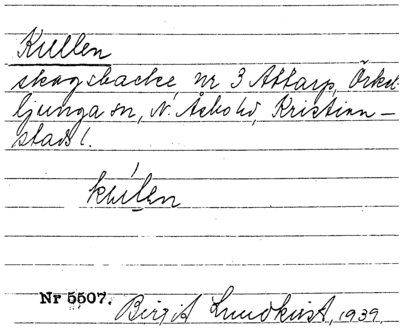 Kullen
skogsbacke, nr 3 Attarp, Örke-
ljunga sn, N. Åsbo hd, Kristian-
stads l.
kúlen
Nr 5507.
Birgit Lundkvist, 1939